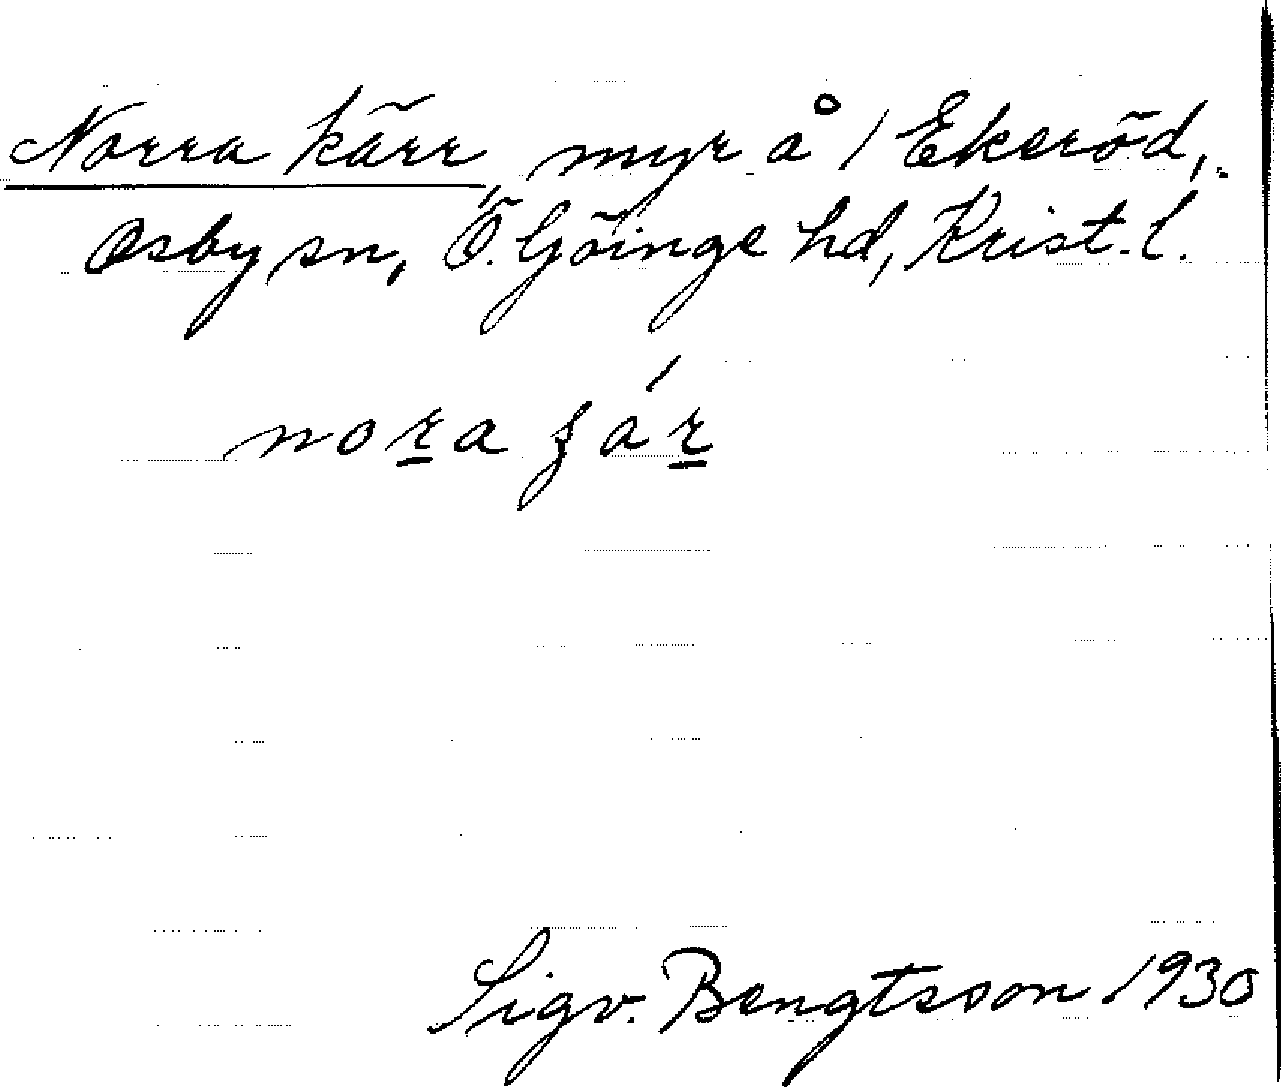 Norra kärr, myr å / Ekeröd,
Osby sn, Ö. Göinge hd, Krist. l.
nora
Sigv. Bengtsson 1930